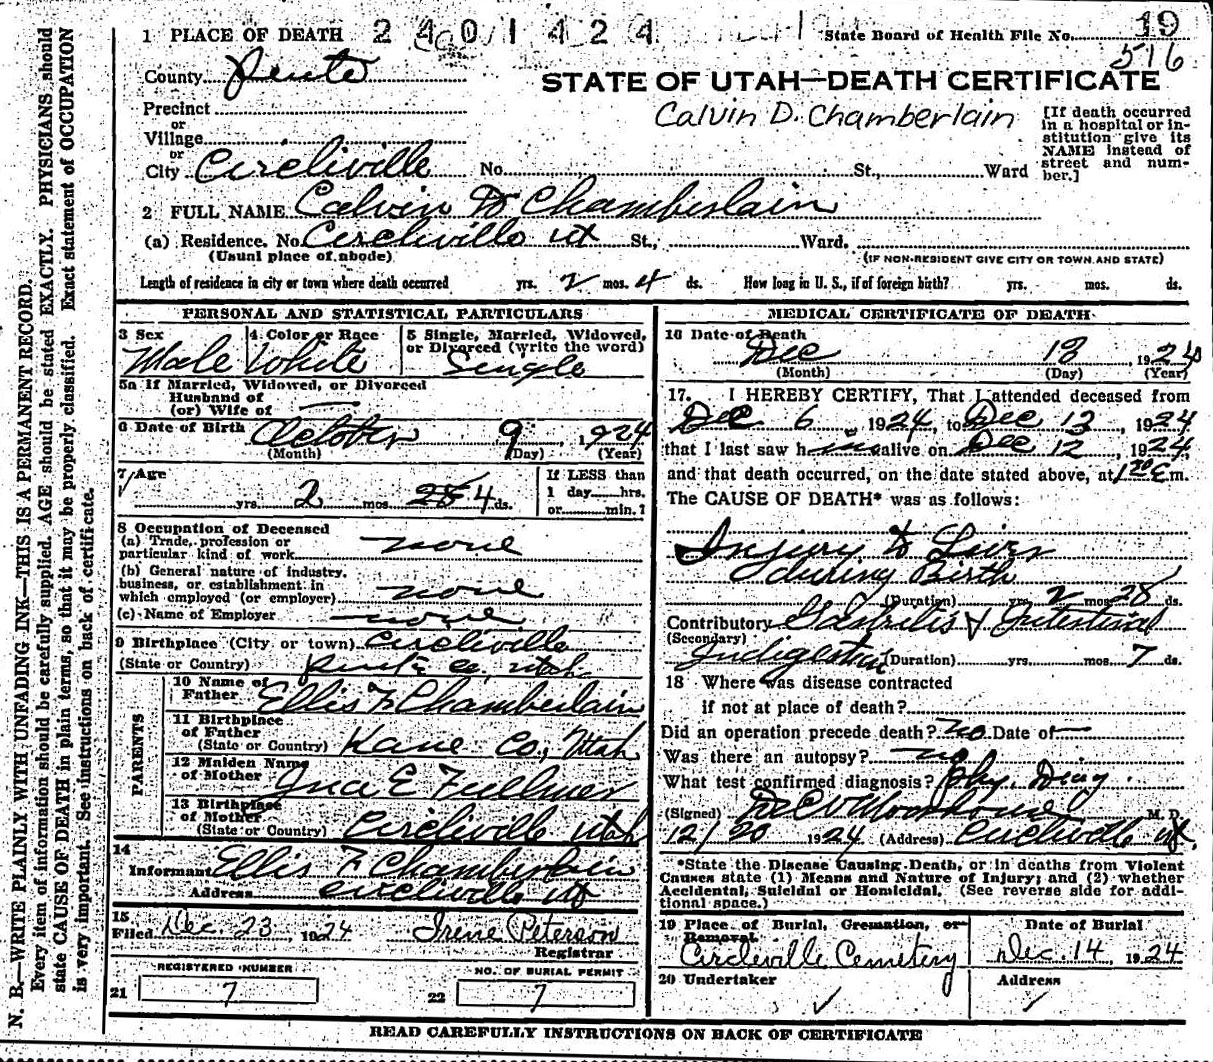 1 PLACE OF DEATH 2401424 State Board of Health File No. 19
516
County Piute
STATE OF UTAH—DEATH CERTIFICATE
Precinct
or
Village
or
City Circleville No. St., Ward
Calvin D. Chamberlain
[If death occurred
in a hospital or in-
stitution give its
NAME instead of
street and num-
ber.]
2 FULL NAME Calvin D Chamberlain
(a) Residence. No. Circleville Ut St., Ward.
(Usual place of abode) (IF NON-RESIDENT GIVE CITY OR TOWN AND STATE)
Length of residence in city or town where death occurred yrs. 2 mos. 4 ds. How long in U. S., if of foreign birth? yrs. mos. ds.
PERSONAL AND STATISTICAL PARTICULARS
3 Sex 4 Color or Race 5 Single, Married, Widowed,
or Divorced (write the word)
Male White Single
5a If Married, Widowed, or Divorced
Husband of
(or) Wife of
6 Date of Birth October 9, 1924
(Month) (Day) (Year)
7 Age If LESS than
yrs. 2 mos. 4 ds. 1 day hrs.
or min.?
8 Occupation of Deceased
(a) Trade, profession or
particular kind of work none
(b) General nature of industry,
business, or establishment in
which employed (or employer) none
(c) Name of Employer none
9 Birthplace (City or town) Circleville
(State or Country) Piute Co. Utah
PARENTS
10 Name of
Father Ellis F Chamberlain
11 Birthplace
of Father
(State or Country) Kane Co., Utah
12 Maiden Name
of Mother Ina E Fullmer
13 Birthplace
of Mother
(State or Country) Circleville Utah
14
Informant Ellis F Chamberlain
Address Circleville Ut
15
Filed Dec. 23, 1924 Irene Peterson
Registrar
REGISTERED NUMBER NO. OF BURIAL PERMIT
21 7 22 7
MEDICAL CERTIFICATE OF DEATH
16 Date of Death
Dec 13 1924
(Month) (Day) (Year)
17. I HEREBY CERTIFY, That I attended deceased from
Dec 6, 1924, to Dec 13, 1924
that I last saw him alive on Dec 12, 1924,
and that death occurred, on the date stated above, at m.
The CAUSE OF DEATH* was as follows:
Injury to Liver
during Birth
(Duration) yrs. 2 mos. 28 ds.
Contributory Gastritis & Intestinal
(Secondary)
Indigestion (Duration) yrs. mos. 7 ds.
18 Where was disease contracted
if not at place of death?
Did an operation precede death? no Date of
Was there an autopsy? no
What test confirmed diagnosis? Phy. Diag.
(Signed) M. D.
12/20 1924 (Address) Circleville Ut.
*State the Disease Causing Death, or in deaths from Violent
Causes state (1) Means and Nature of Injury; and (2) whether
Accidental, Suicidal or Homicidal. (See reverse side for addi-
tional space.)
19 Place of Burial, Cremation, or Date of Burial
Removal
Circleville Cemetery Dec. 14, 1924
20 Undertaker Address
READ CAREFULLY INSTRUCTIONS ON BACK OF CERTIFICATE
N. B.—WRITE PLAINLY WITH UNFADING INK—THIS IS A PERMANENT RECORD.
Every item of information should be carefully supplied. AGE should be stated EXACTLY. PHYSICIANS should
state CAUSE OF DEATH in plain terms, so that it may be properly classified. Exact statement of OCCUPATION
is very important. See instructions on back of certificate.